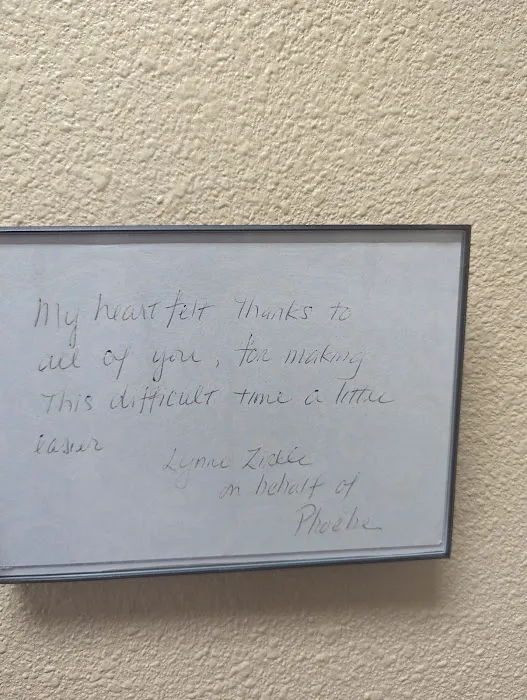 My heart felt Thanks to
all of you, for making
This difficult time a little
easier
Lynne
on behalf of
Phoebe